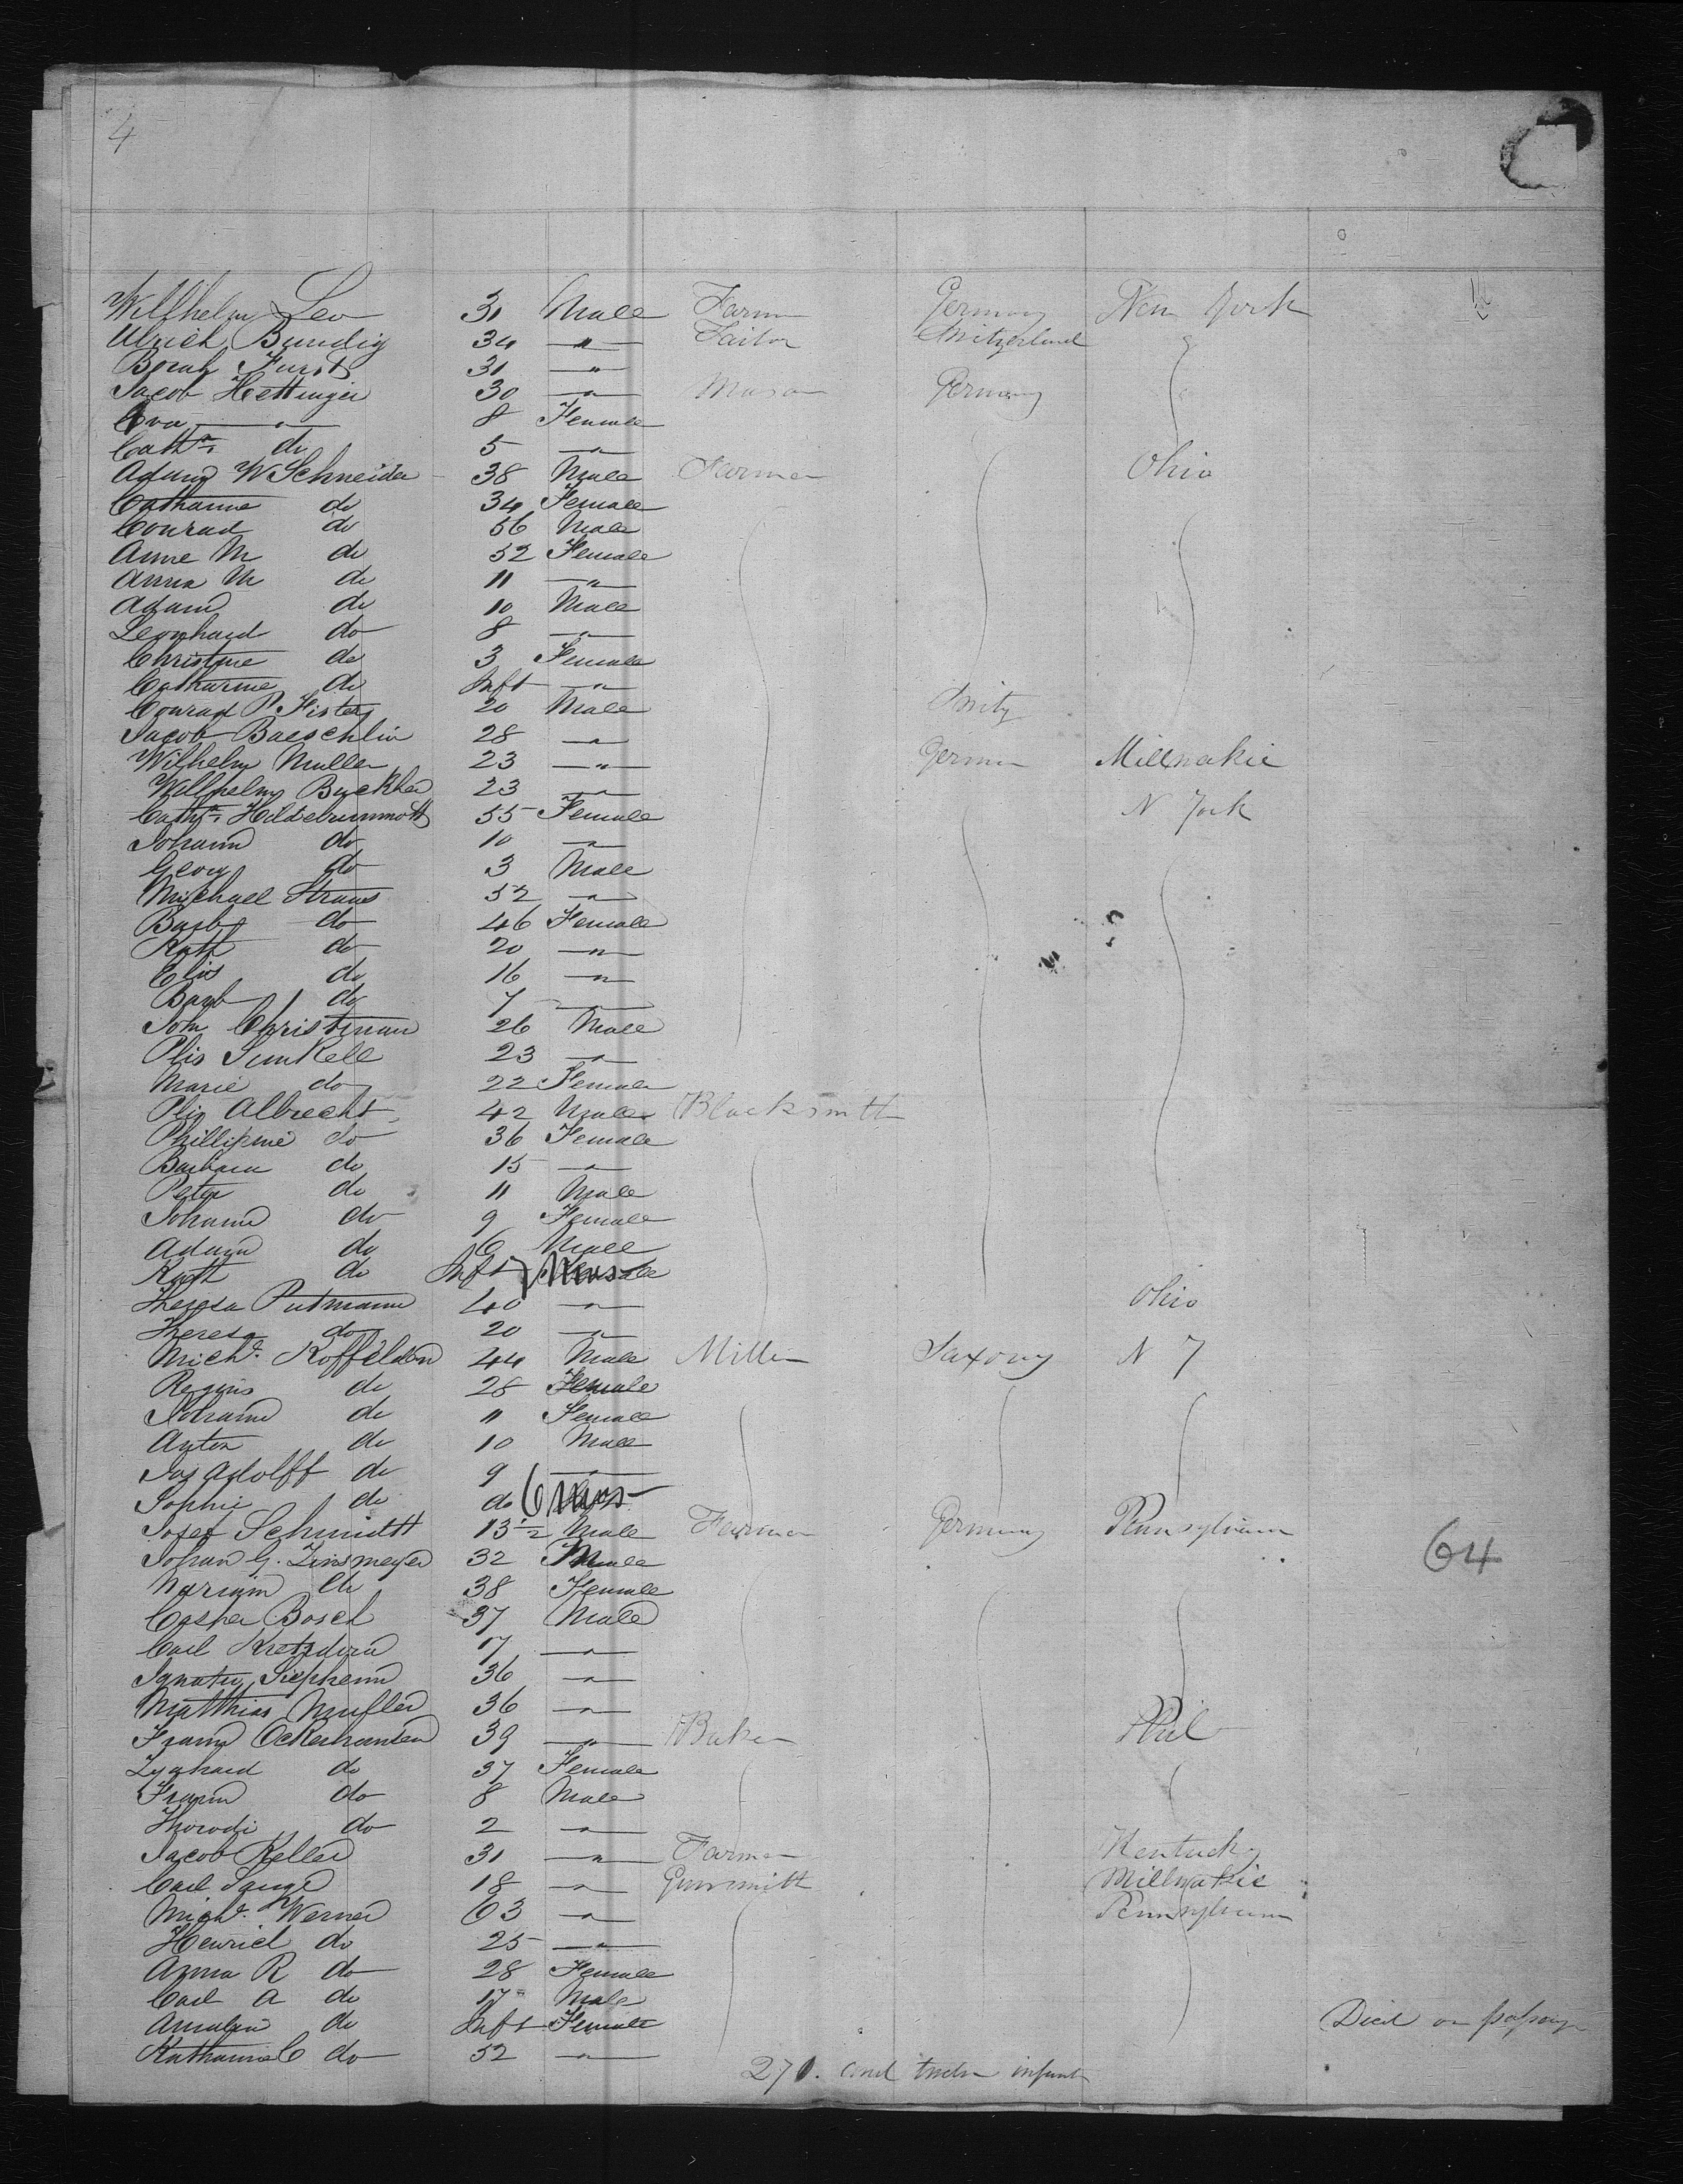 4
Wilhelm Leo 31 Male Farmer Germany New York
Ulrich Bundig 34 " Tailor Switzerland
Furst 31 "
Jacob Hettinger 30 " Mason Germany
Eva " 8 Female
Cathn. do 5 "
Adam W Schneider 38 Male Farmer Ohio
Catharine do 34 Female
Conrad do 56 Male
Anne M do 52 Female
Anna M do 11 "
Adam do 10 Male
Leonhard do 8 "
Christine do 3 Female
Catharine do Inft "
Conrad P. Fister 20 Male Switz
Jacob Baeschlin 28 "
Wilhelm Muller 23 " German Millwakie
Wilhelm 23 " N York
Cathn. 55 Female
Johann do 10 "
Georg do 3 Male
Michael Straus 52 "
Barb do 46 Female
Kath do 20 "
Elis do 16 "
Barb do 7 "
Joh Christman 26 Male
Sunkell 23 "
Marie do 22 Female
Albrecht 42 Male Blacksmith
Phillipine do 36 Female
Barbara do 15 "
Peter do 11 Male
Johann do 9 Female
Adam do 6 Male
Kath do Inft 7 Mos
Theresa Putmann 40 " Ohio
Theresa do 20 "
Michl. Koffelden 44 Male Miller Saxony N Y
Regins do 28 Female
Johann do 11 Female
Anton do 10 Male
Jos Adolff do 9 "
Sophie do do 6 Mos
Josef Schmidtt 13 1/2 Male Farmer Germany Pennsylvania
64
Johan G. Zinsmeyer 32 Male
do 38 Female
Casper Bosch 37 Male
Carl 17 "
Ignatz 36 "
Matthias 36 "
Franz Ockerhausen 39 " Baker Phil
do 37 Female
Franz do 8 Male
do 2 "
Jacob Keller 31 " Farmer Kentucky
Carl Lange 18 " Gunsmith Millwakie
Michl. Werner 63 " Pennsylvania
Heinrich do 25 "
Anna R do 28 Female
Carl A do 17 Male
do Inft Female Died on passage
Katharine C do 52 "
270. and twelve infants